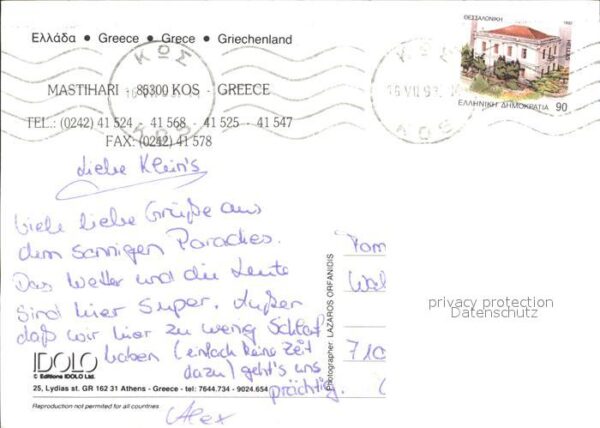 Ελλάδα • Greece • Grece • Griechenland
ΘΕΣΣΑΛΟΝΙΚΗ 1992
HELLAS
ΕΛΛΗΝΙΚΗ ΔΗΜΟΚΡΑΤΙΑ 90
ΚΩΣ
ΚΩΣ
16 VII 93
MASTIHARI - 85300 KOS - GREECE
TEL.: (0242) 41 524 - 41 568 - 41 525 - 41 547
FAX: (0242) 41 578
Liebe Klein's
Viele liebe Grüße aus
dem sonnigen Paradies.
Das Wetter und die Leute
sind hier Super. Außer
daß wir hier zu wenig Schlaf
haben (einfach keine Zeit
dazu) geht's uns
prächtig.
Alex
IDOLO
© Editions IDOLO Ltd.
25, Lydias st. GR 162 31 Athens - Greece - tel: 7644.734 - 9024.654
Reproduction not permitted for all countries
Photographer LAZAROS ORFANIDIS
710
privacy protection
Datenschutz